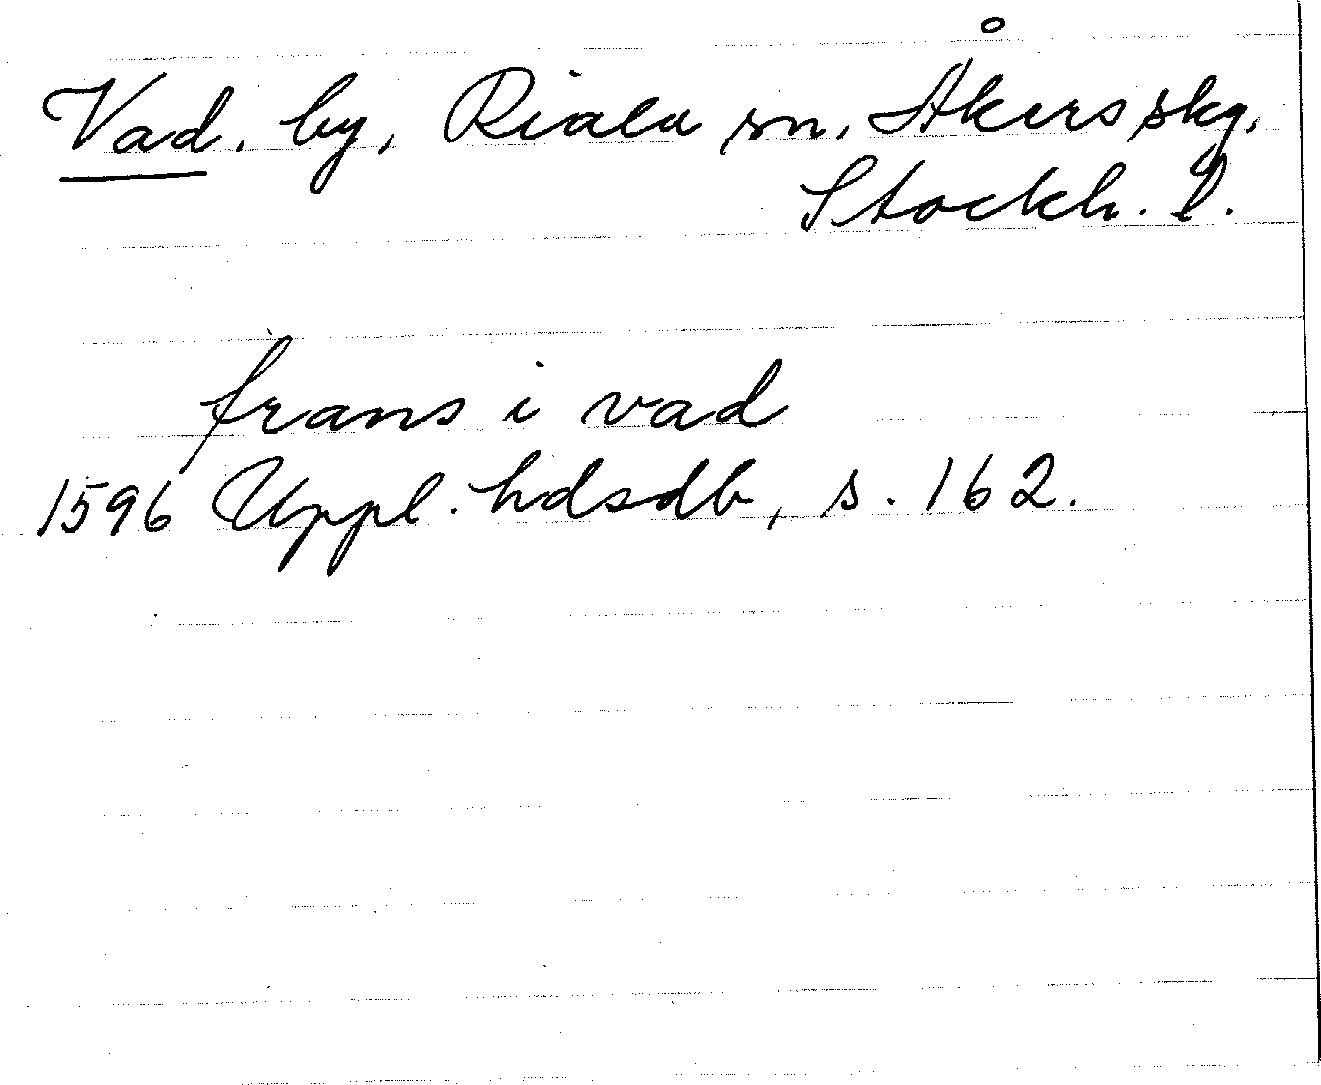 Vad. by, Riala sn. Åkers skg.
Stockh. l.
frans i vad
1596 Uppl. hdsdb, s. 162.